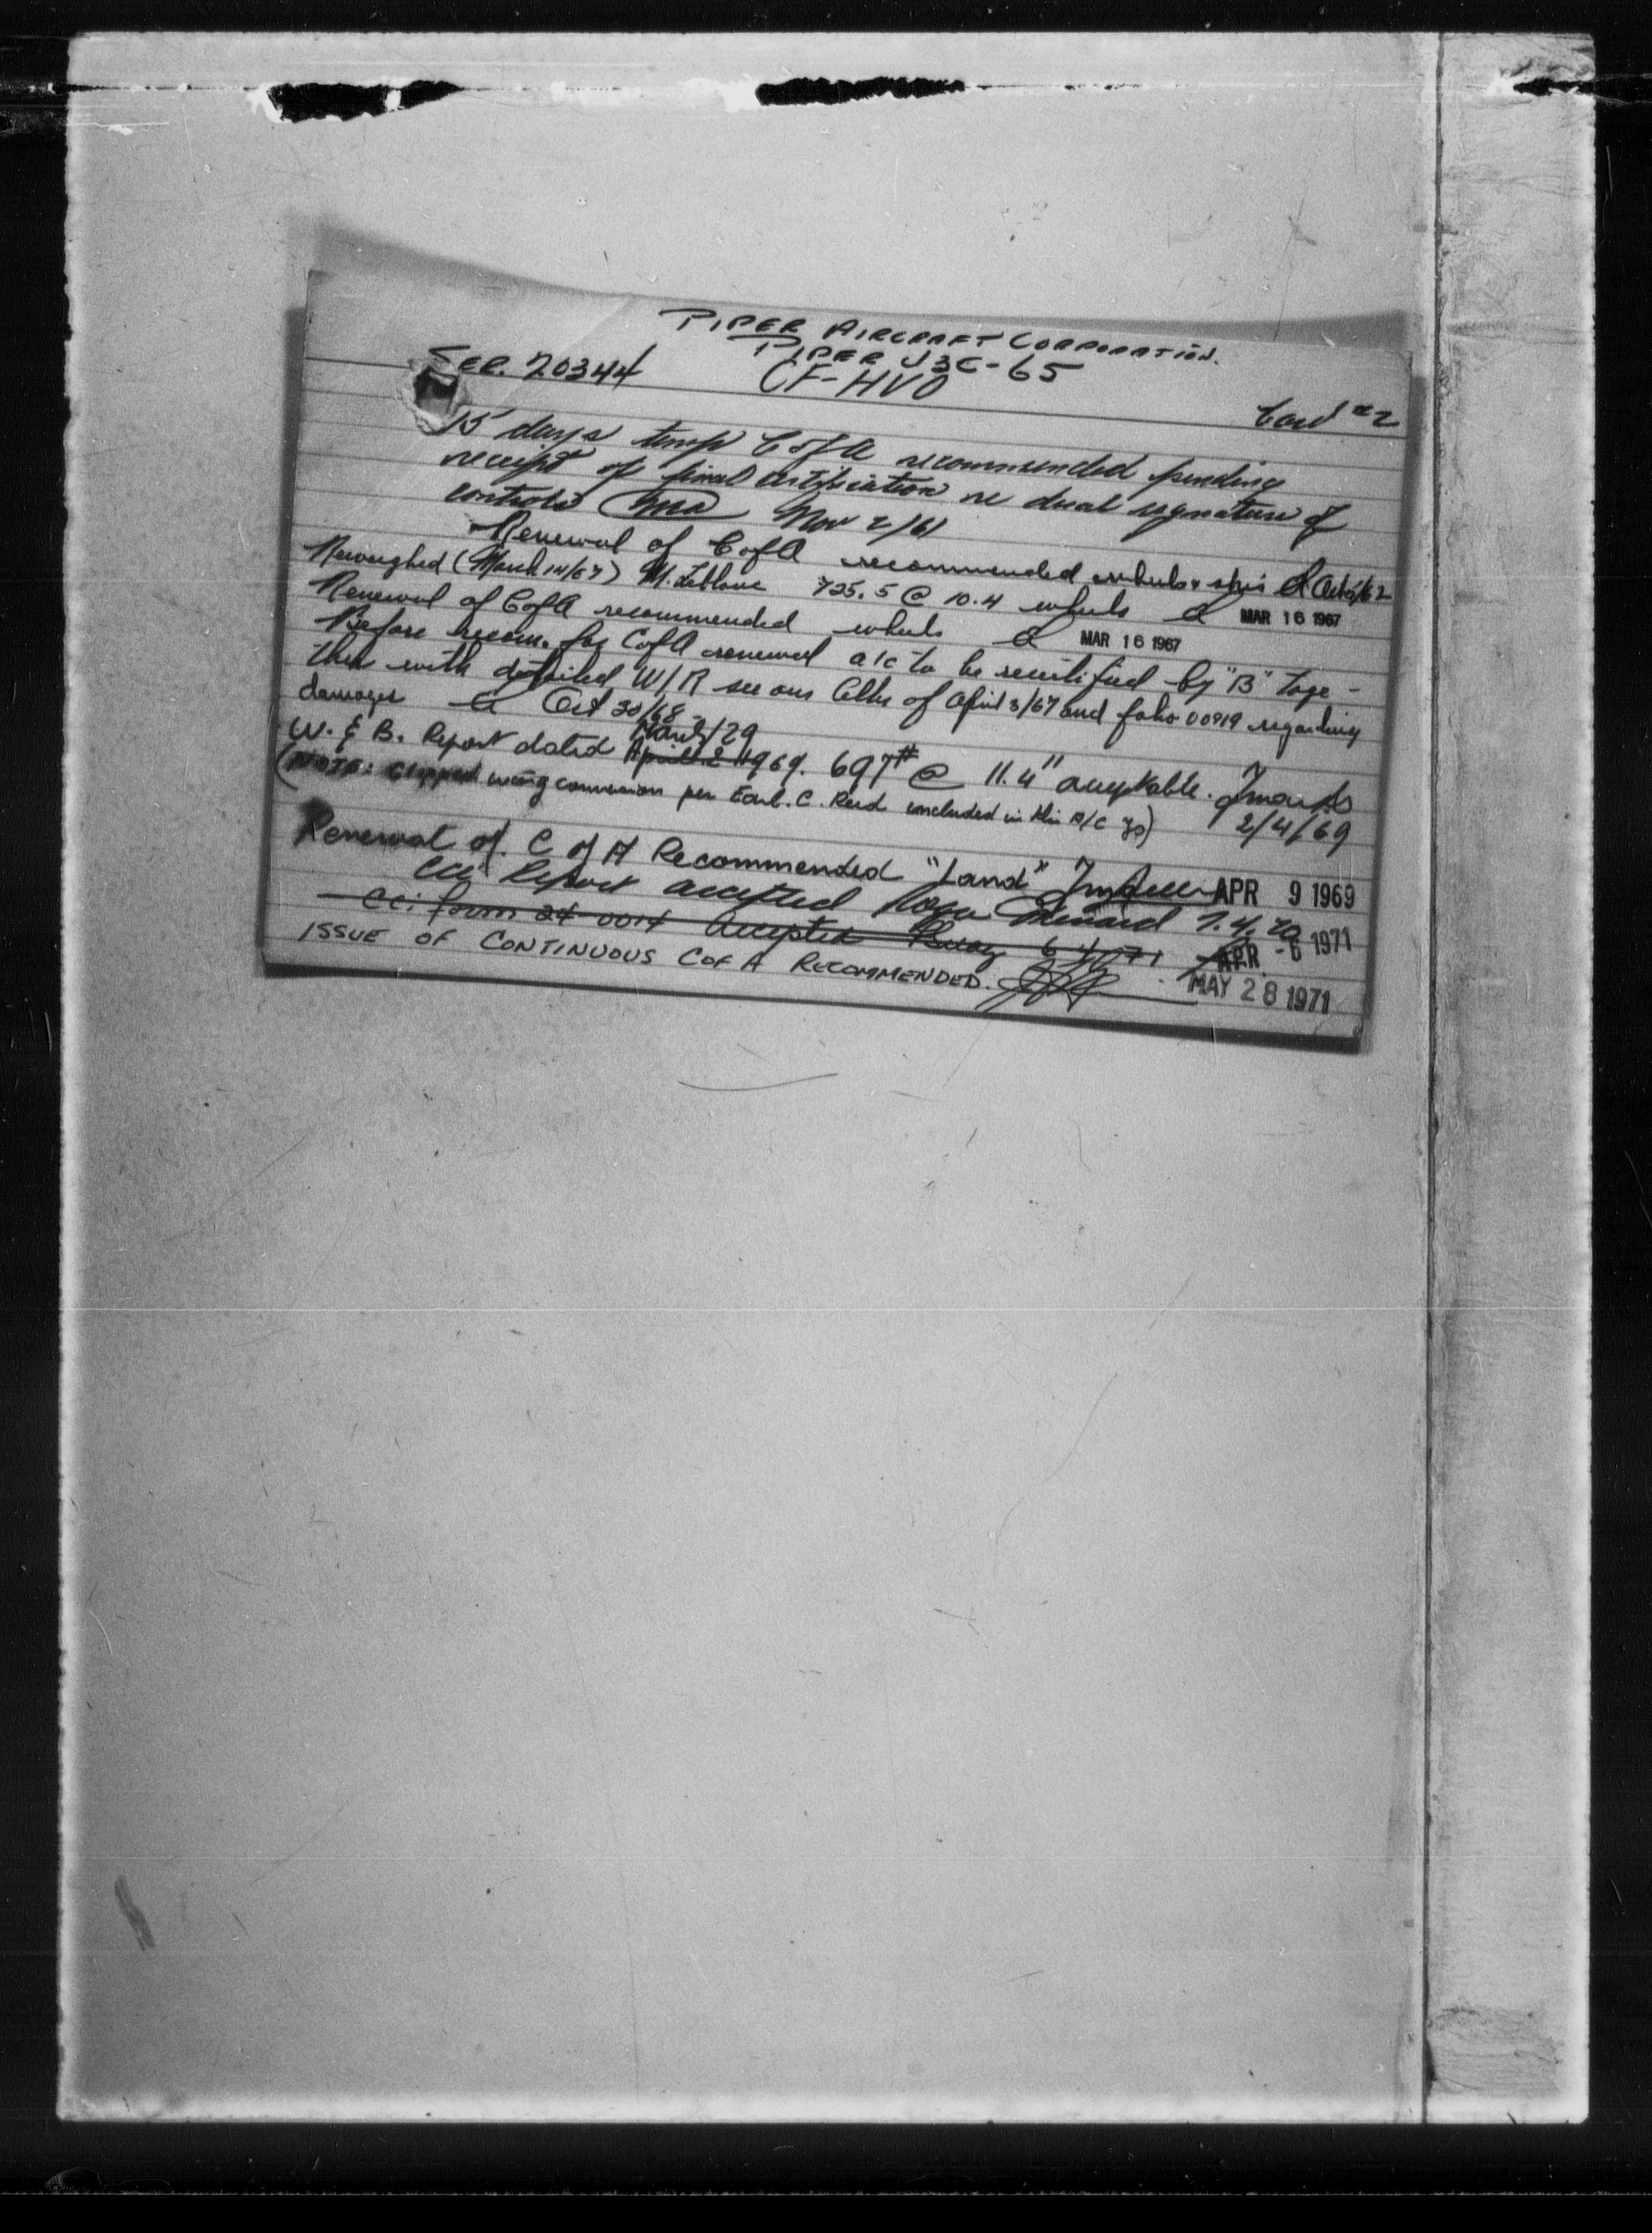 PIPER AIRCRAFT CORPORATION.
PIPER J3C-65
SER. 20344 CF-HVO
Card #2
15 days temp C of A recommended pending
receipt of final certification re dual signature of
controls Nov 2/61
Renewal of C of A recommended wheels & skis Oct 5/62
Reweighed (March 14/67) M. Leblanc 725.5 @ 10.4 wheels MAR 16 1967
Renewal of C of A recommended wheels MAR 16 1967
Before recom. for C of A renewal a/c to be recertified by "B" toge-
ther with detailed W/R see our letter of April 3/67 and folio 00919 regarding
damages Oct 30/68
March/29
W. & B. Report dated April 2 1969. 697# @ 11.4" acceptable.
(NOTE: Clipped wing conversion per Earl. C. Reid included in this A/C) 2/4/69
Renewal of C of A Recommended "Land" APR 9 1969
CCI Report accepted Roger Menard 7.4.70
CCI form 24-0014 Accepted 6 4 71 APR -6 1971
ISSUE OF CONTINUOUS C OF A RECOMMENDED. MAY 28 1971